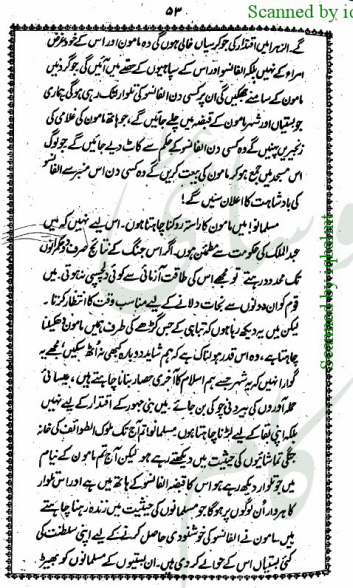 Scanned by iq
۵۳
گے۔ الزہرا میں اقتدار کی جو کرسیاں خالی ہوں گی وہ مامون اور اس کے خود غرض
امراء کے نہیں بلکہ الفانسو اور اس کے سپاہیوں کے حصے میں آئیں گی، جو گردنیں
مامون کے سامنے جھکیں گی ان پر کسی دن الفانسو کی تلوار لٹک رہی ہوگی ہماری
جو بستیاں اور شہر مامون کے قبضہ میں چلے جائیں گے، جو ہاتھ مامون کی غلامی کی
زنجیریں پہنیں گے وہ کسی دن الفانسو کے حکم سے کاٹ دیے جائیں گے۔ جو لوگ
اس مسجد میں جمع ہو کر مامون کی بیعت کریں گے وہ کسی دن اس منبر سے الفانسو
کی بادشاہت کا اعلان سنیں گے!
مسلمانو! میں مامون کا راستہ روکنا چاہتا ہوں۔ اس لیے نہیں کہ میں
عبدالملک کی حکومت سے مطمئن ہوں۔ اگر اس جنگ کے نتائج صرف دو حکمرانوں
تک محدود رہتے تو مجھے اس کی طاقت آزمائی سے کوئی دلچسپی نہ ہوتی۔ میں
قوم کو ان دونوں سے نجات دلانے کے لیے مناسب وقت کا انتظار کرتا۔
لیکن میں یہ دیکھ رہا ہوں کہ تباہی کے جس گڑھے کی طرف ہمیں مامون دھکیلنا
چاہتا ہے، وہ اس قدر ہولناک ہے کہ ہم شاید دوبارہ کبھی نہ اُٹھ سکیں۔ مجھے یہ
گوارا نہیں کہ یہ شہر جسے ہم اسلام کا آخری حصار بنانا چاہتے ہیں، عیسائی
حملہ آوروں کی بیرونی چوکی بن جائے۔ میں ہی جہور کے اقتدار کے لیے نہیں
بلکہ اپنی بقا کے لیے لڑنا چاہتا ہوں۔ مسلمانو تم آج تک ملوک الطوائف کی خانہ
جنگی تماشائیوں کی حیثیت میں دیکھتے رہے ہو لیکن آج تم مامون کے نیام
میں جو تلوار دیکھ رہے ہو اس کا قبضہ الفانسو کے ہاتھ میں ہے اور اس تلوار
کا ہر وار اُن لوگوں پر ہوگا جو مسلمانوں کی حیثیت میں زندہ رہنا چاہتے
ہیں۔ مامون نے الفانسو کی خوشنودی حاصل کرنے کے لیے اپنی سلطنت کی
کئی بستیاں اس کے حوالے کر دی ہیں۔ ان بستیوں کے مسلمانوں کو بھیڑ
Scanned by iqbalmt